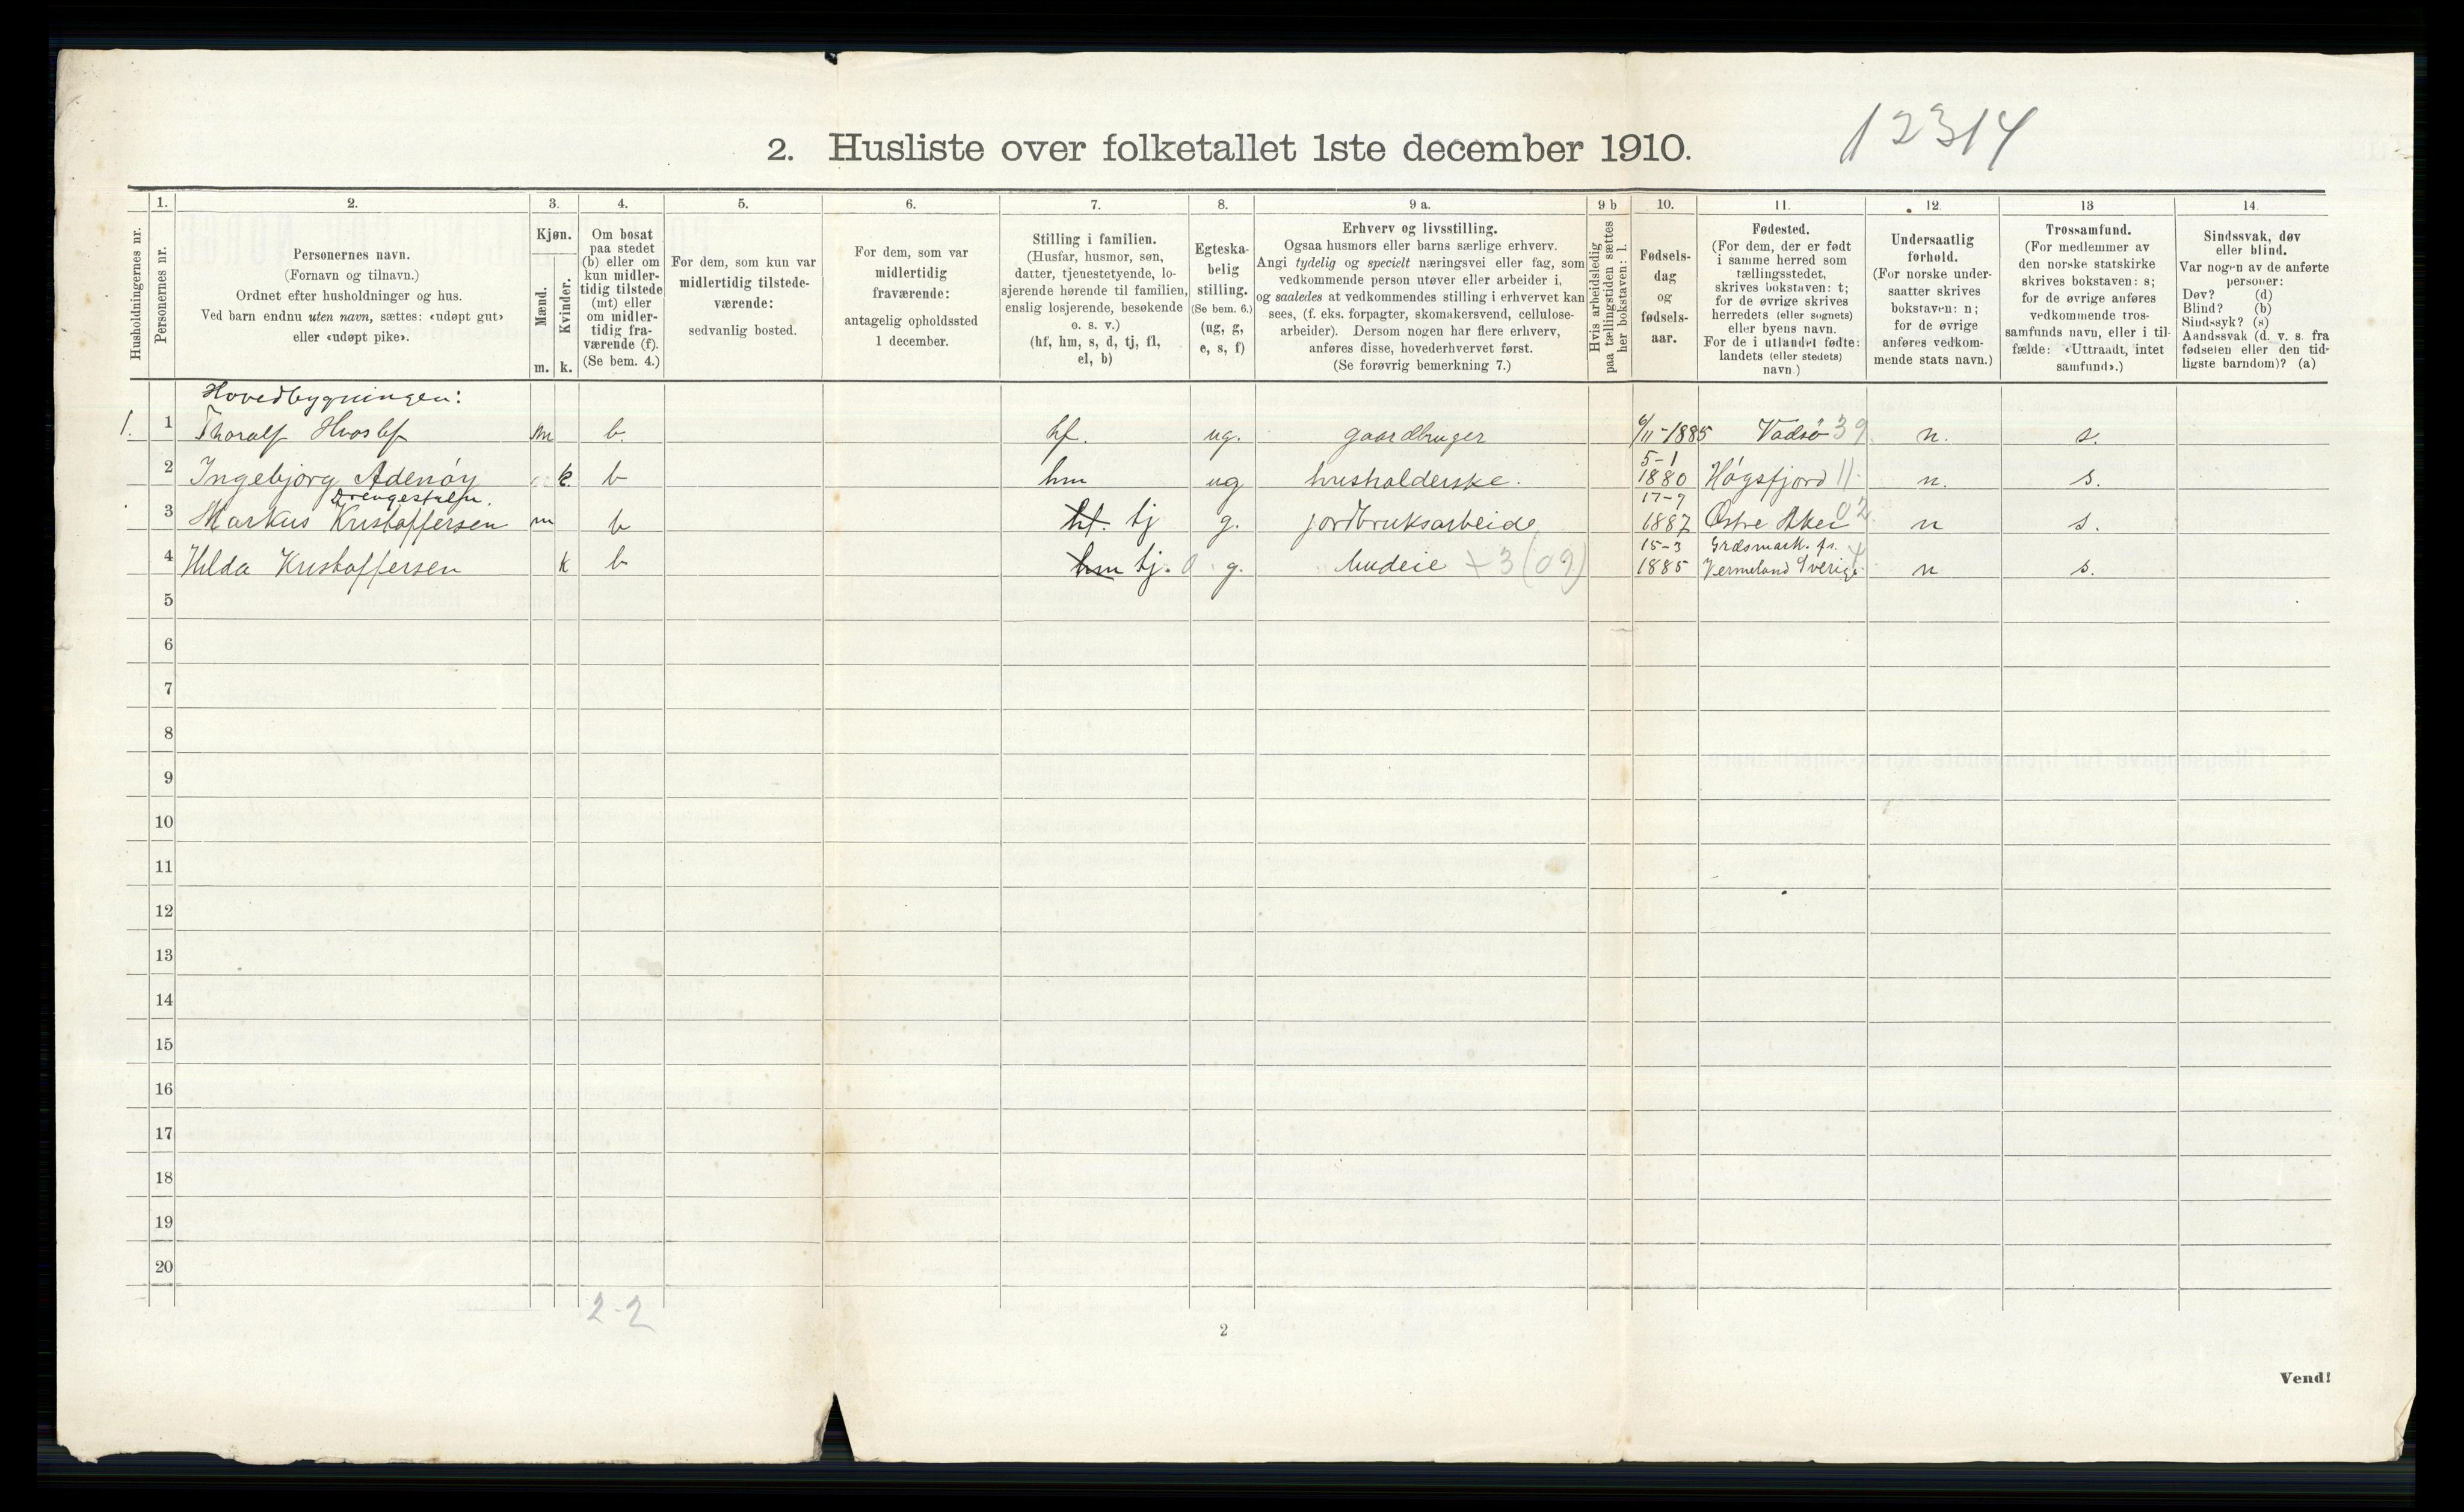 12314
2. Husliste over folketallet 1ste december 1910.
Husholdningernes nr.
1.
Personernes nr.
2.
Personernes navn.
(Fornavn og tilnavn.)
Ordnet efter husholdninger og hus.
Ved barn endnu uten navn, sættes: «udøpt gut»
eller «udøpt pike».
3.
Kjøn.
Mænd.
Kvinder.
m. k.
4.
Om bosat
paa stedet
(b) eller om
kun midler-
tidig tilstede
(mt) eller
om midler-
tidig fra-
værende (f).
(Se bem. 4.)
5.
For dem, som kun var
midlertidig tilstede-
værende:
sedvanlig bosted.
6.
For dem, som var
midlertidig
fraværende:
antagelig opholdssted
1 december.
7.
Stilling i familien.
(Husfar, husmor, søn,
datter, tjenestetyende, lo-
sjerende hørende til familien,
enslig losjerende, besøkende
o. s. v.)
(hf, hm, s, d, tj, fl,
el, b)
8.
Egteska-
belig
stilling.
(Se bem. 6.)
(ug, g,
e, s, f)
9 a.
Erhverv og livsstilling.
Ogsaa husmors eller barns særlige erhverv.
Angi tydelig og specielt næringsvei eller fag, som
vedkommende person utøver eller arbeider i,
og saaledes at vedkommendes stilling i erhvervet kan
sees, (f. eks. forpagter, skomakersvend, cellulose-
arbeider). Dersom nogen har flere erhverv,
anføres disse, hovederhvervet først.
(Se forøvrig bemerkning 7.)
9 b
Hvis arbeidsledig
paa tællingstiden sættes
her bokstaven: l.
10.
Fødsels-
dag
og
fødsels-
aar.
11.
Fødested.
(For dem, der er født
i samme herred som
tællingsstedet,
skrives bokstaven: t;
for de øvrige skrives
herredets (eller sognets)
eller byens navn.
For de i utlandet fødte:
landets (eller stedets)
navn.)
12.
Undersaatlig
forhold.
(For norske under-
saatter skrives
bokstaven: n;
for de øvrige
anføres vedkom-
mende stats navn.)
13
Trossamfund.
(For medlemmer av
den norske statskirke
skrives bokstaven: s;
for de øvrige anføres
vedkommende tros-
samfunds navn, eller i til-
fælde: «Uttraadt, intet
samfund».)
14.
Sindssvak, døv
eller blind.
Var nogen av de anførte
personer:
Døv? (d)
Blind? (b)
Sindssyk? (s)
Aandssvak (d. v. s. fra
fødselen eller den tid-
ligste barndom)? (a)
Hovedbygningen:
1. 1 Thoralf Hvoslef m b. hf. ug. gaardbruger 6/11-1885 Vadsö 39 n. s.
5-1
2 Ingebjörg Adenöy k. b hm ug husholderske. 1880 Høgsfjord 11 n. s.
Drengestuen. 17-9
3 Markus Kristoffersen m b hf. tj g. jordbruksarbeide 1887 Østre Aker 02 n s.
15-3 Græsmark. ps.
4 Hilda Kristoffersen k b hm tj. 0 g. budeie +3 (09) 1885 Vermeland Sverige n s.
5
6
7
8
9
10
11
12
13
14
15
16
17
18
19
20
2-2
2
Vend!